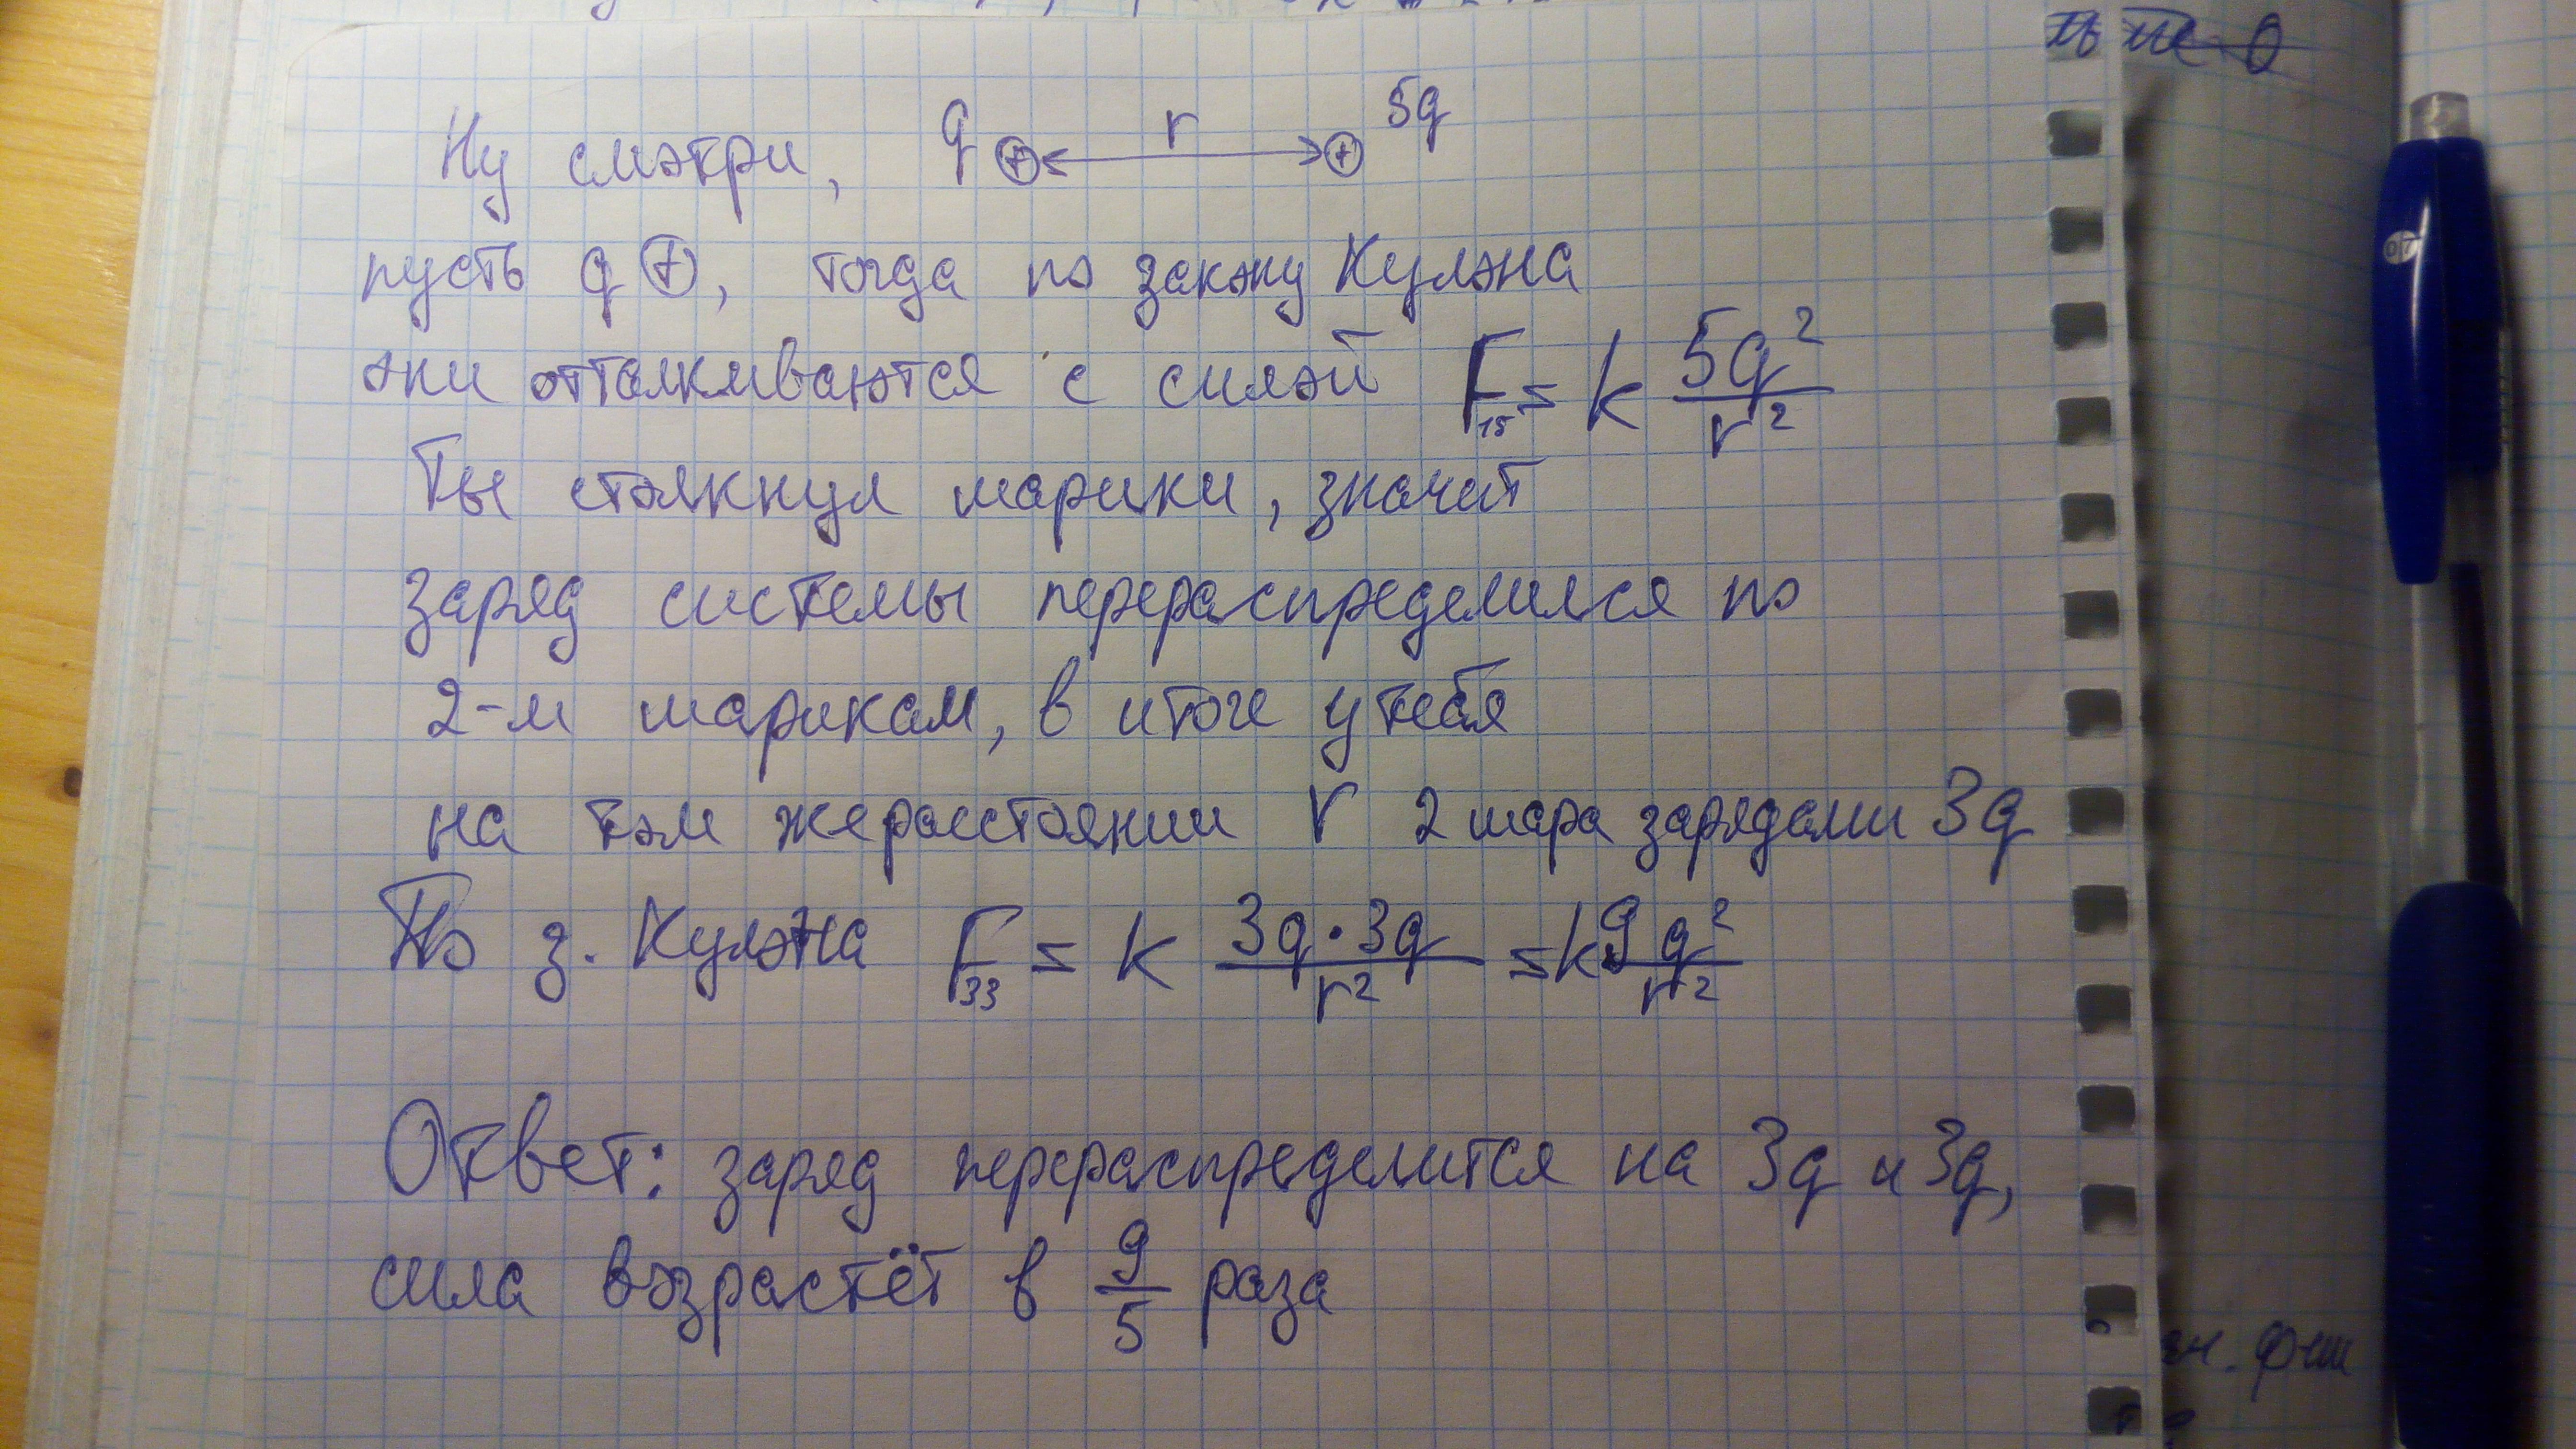 Ну смотри, q ⊕ ⟷ r ⊕ 5q
пусть q ⊕, тогда по закону Кулона
они отталкиваются с силой F₁₅ = k 5q²/r²
Ты столкнул шарики, значит
заряд системы перераспределился по
2-м шарикам, в итоге у тебя
на том же расстоянии r 2 шара зарядами 3q
По з. Кулона F₃₃ = k 3q·3q/r² = k 9q²/r²
Ответ: заряд перераспределится на 3q и 3q,
сила возрастёт в 9/5 раза
07